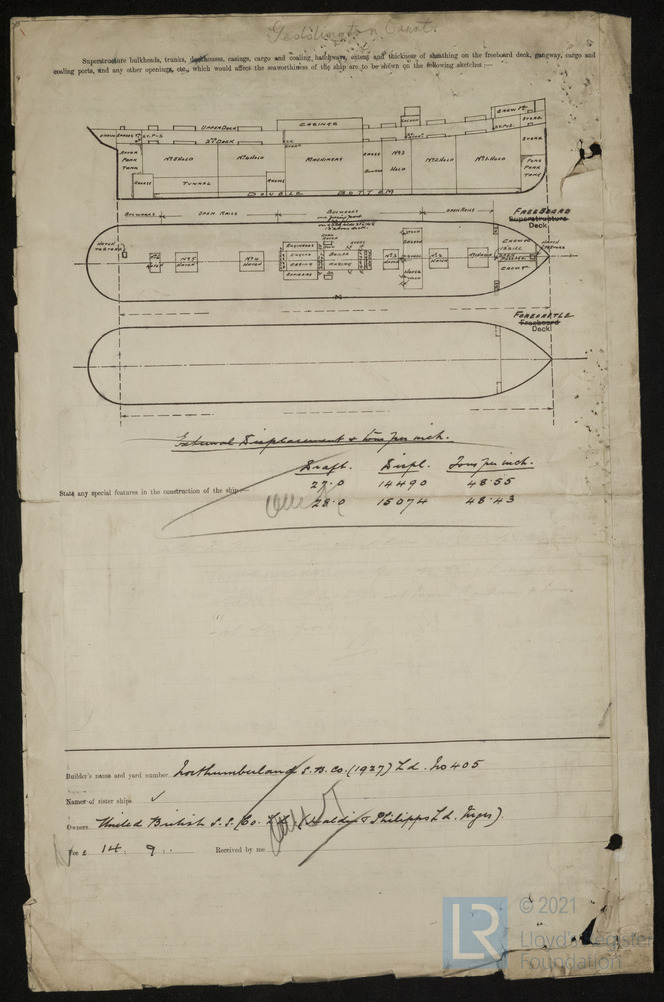 Taddlington Court.
Superstructure bulkheads, trunks, deckhouses, casings, cargo and coaling hatchways, extent and thickness of sheathing on the freeboard deck, gangway, cargo and
coaling ports, and any other openings, etc., which would affect the seaworthiness of the ship are to be shewn on the following sketches :—
CREW Pt
STORE
UPPER DECK
CASINGS
2nd DECK
STORE
AFTER PEAK TANK
No5 HOLD
No4 HOLD
MACHINERY
CROSS BUNKER
No3 HOLD
No2 HOLD
No1 HOLD
FORE PEAK TANK
RECESS
TUNNEL
RECESS
DOUBLE BOTTOM
BULWARKS
OPEN RAILS
BULWARKS
OPEN RAILS
FREEBOARD
Superstructure
Deck
No5 HATCH
No4 HATCH
ENGINEERS
ENGINE CASING
BOILER CASING
No3 HATCH
SALOON
HATCH
No2 HATCH
No1 HATCH
FORECASTLE
Freeboard
Deck
External Displacement & tons per inch.
Draft. Displ. Tons per inch.
27.0 14490 48.55
State any special features in the construction of the ship:—
28.0 15074 48.43
Builder's name and yard number Northumberland S.B. Co. (1927) Ld. No 405
Names of sister ships ✓
Owners United British S.S. Co. Ld. (Haldin & Philipps Ld. Mgrs).
Fee £ 14. 9. : Received by me
LR
© 2021
Lloyd's Register
Foundation